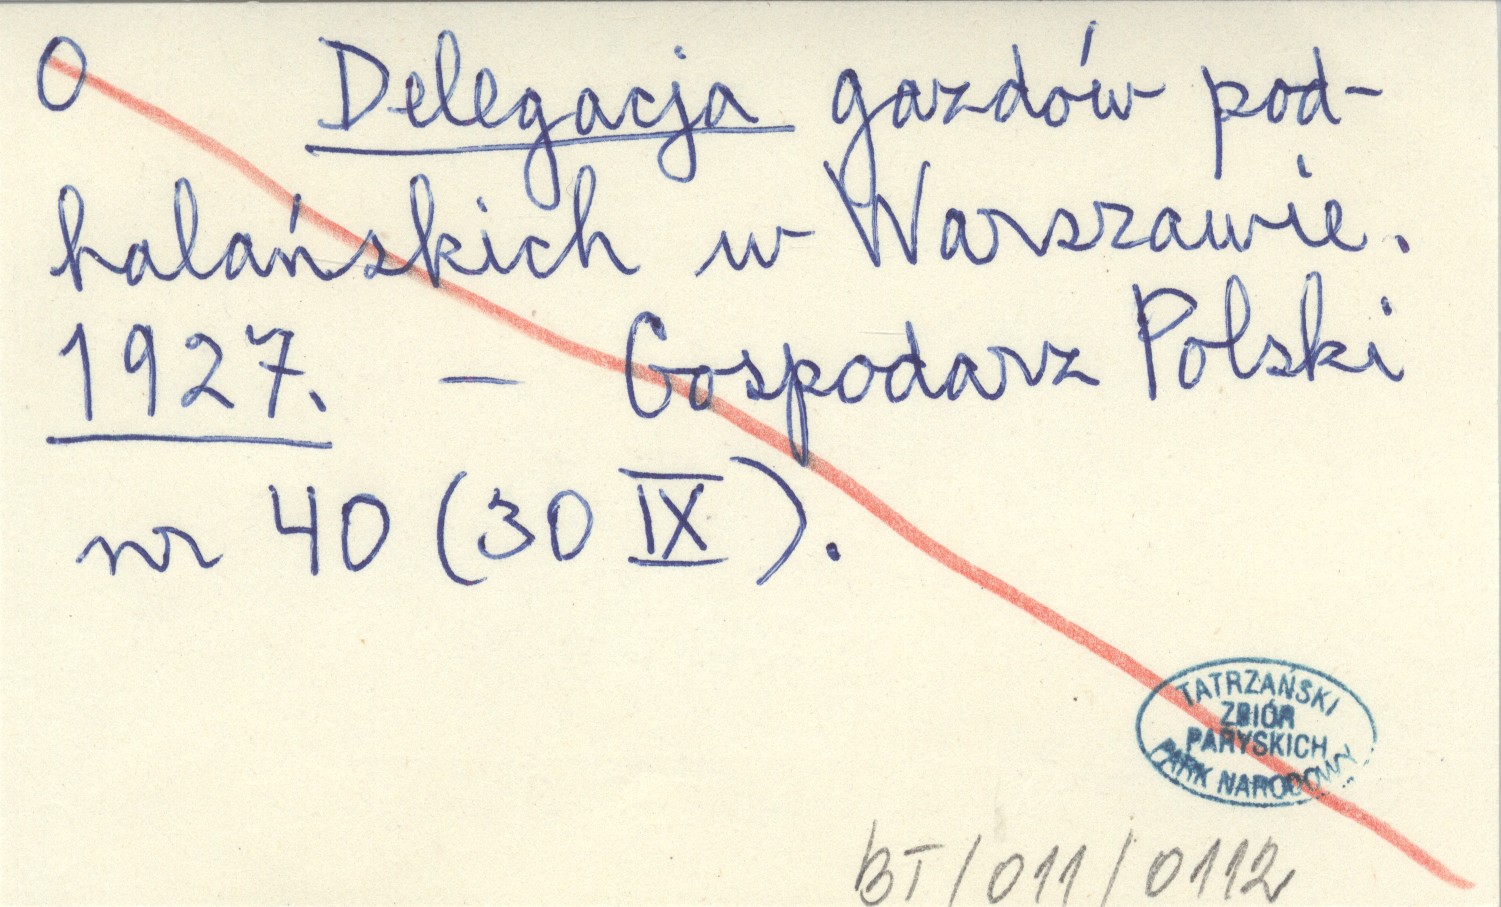 O Delegacja gazdów pod-
halańskich w Warszawie.
1927. — Gospodarz Polski
nr 40 (30 IX).
TATRZAŃSKI
ZBIÓR
PARYSKICH
PARK NARODOWY
BT/011/0112